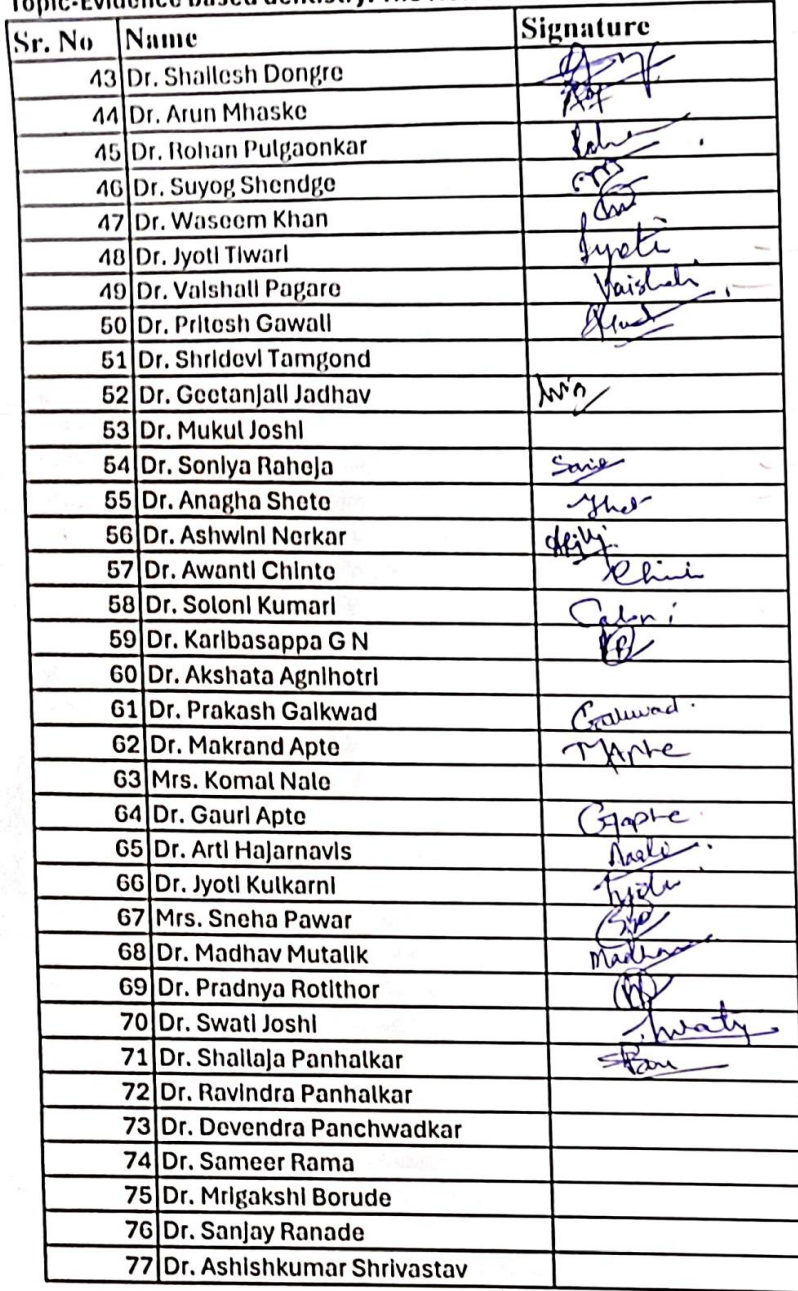 Topic-Evidence based dentistry: The
Sr. No Name Signature
43 Dr. Shailesh Dongre
44 Dr. Arun Mhaske
45 Dr. Rohan Pulgaonkar
46 Dr. Suyog Shendge
47 Dr. Waseem Khan
48 Dr. Jyoti Tiwari Jyoti
49 Dr. Vaishali Pagare Vaishali
50 Dr. Pritesh Gawali
51 Dr. Shridevi Tamgond
52 Dr. Geetanjali Jadhav
53 Dr. Mukul Joshi
54 Dr. Soniya Raheja
55 Dr. Anagha Shete
56 Dr. Ashwini Nerkar
57 Dr. Awanti Chinte
58 Dr. Soloni Kumari
59 Dr. Karibasappa G N
60 Dr. Akshata Agnihotri
61 Dr. Prakash Gaikwad Gaikwad.
62 Dr. Makrand Apte MApte
63 Mrs. Komal Nale
64 Dr. Gauri Apte GApte
65 Dr. Arti Hajarnavis
66 Dr. Jyoti Kulkarni
67 Mrs. Sneha Pawar
68 Dr. Madhav Mutalik
69 Dr. Pradnya Rotithor
70 Dr. Swati Joshi
71 Dr. Shailaja Panhalkar
72 Dr. Ravindra Panhalkar
73 Dr. Devendra Panchwadkar
74 Dr. Sameer Rama
75 Dr. Mrigakshi Borude
76 Dr. Sanjay Ranade
77 Dr. Ashishkumar Shrivastav